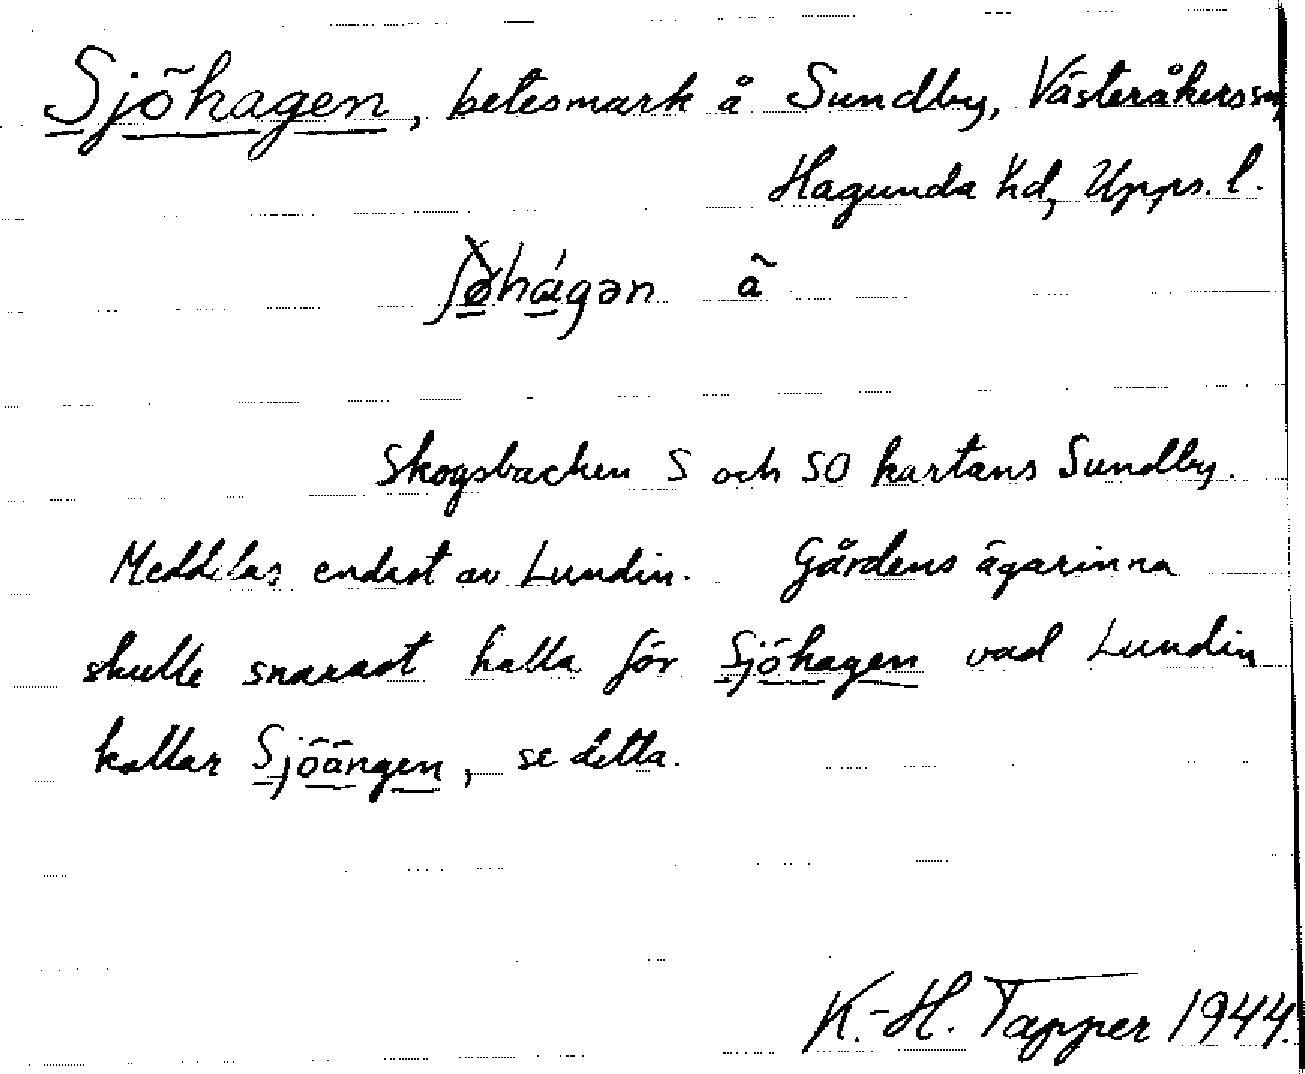 Sjöhagen, betesmark å Sundby, Västeråkers sn,
Hagunda hd, Upps. l.
ʃø̀hágən å
Skogsbacken S och SO kartans Sundby.
Meddelas endast av Lundin. Gårdens ägarinna
skulle snarast kalla för Sjöhagen vad Lundin
kallar Sjöängen, se detta.
K.-H. Tapper 1944.